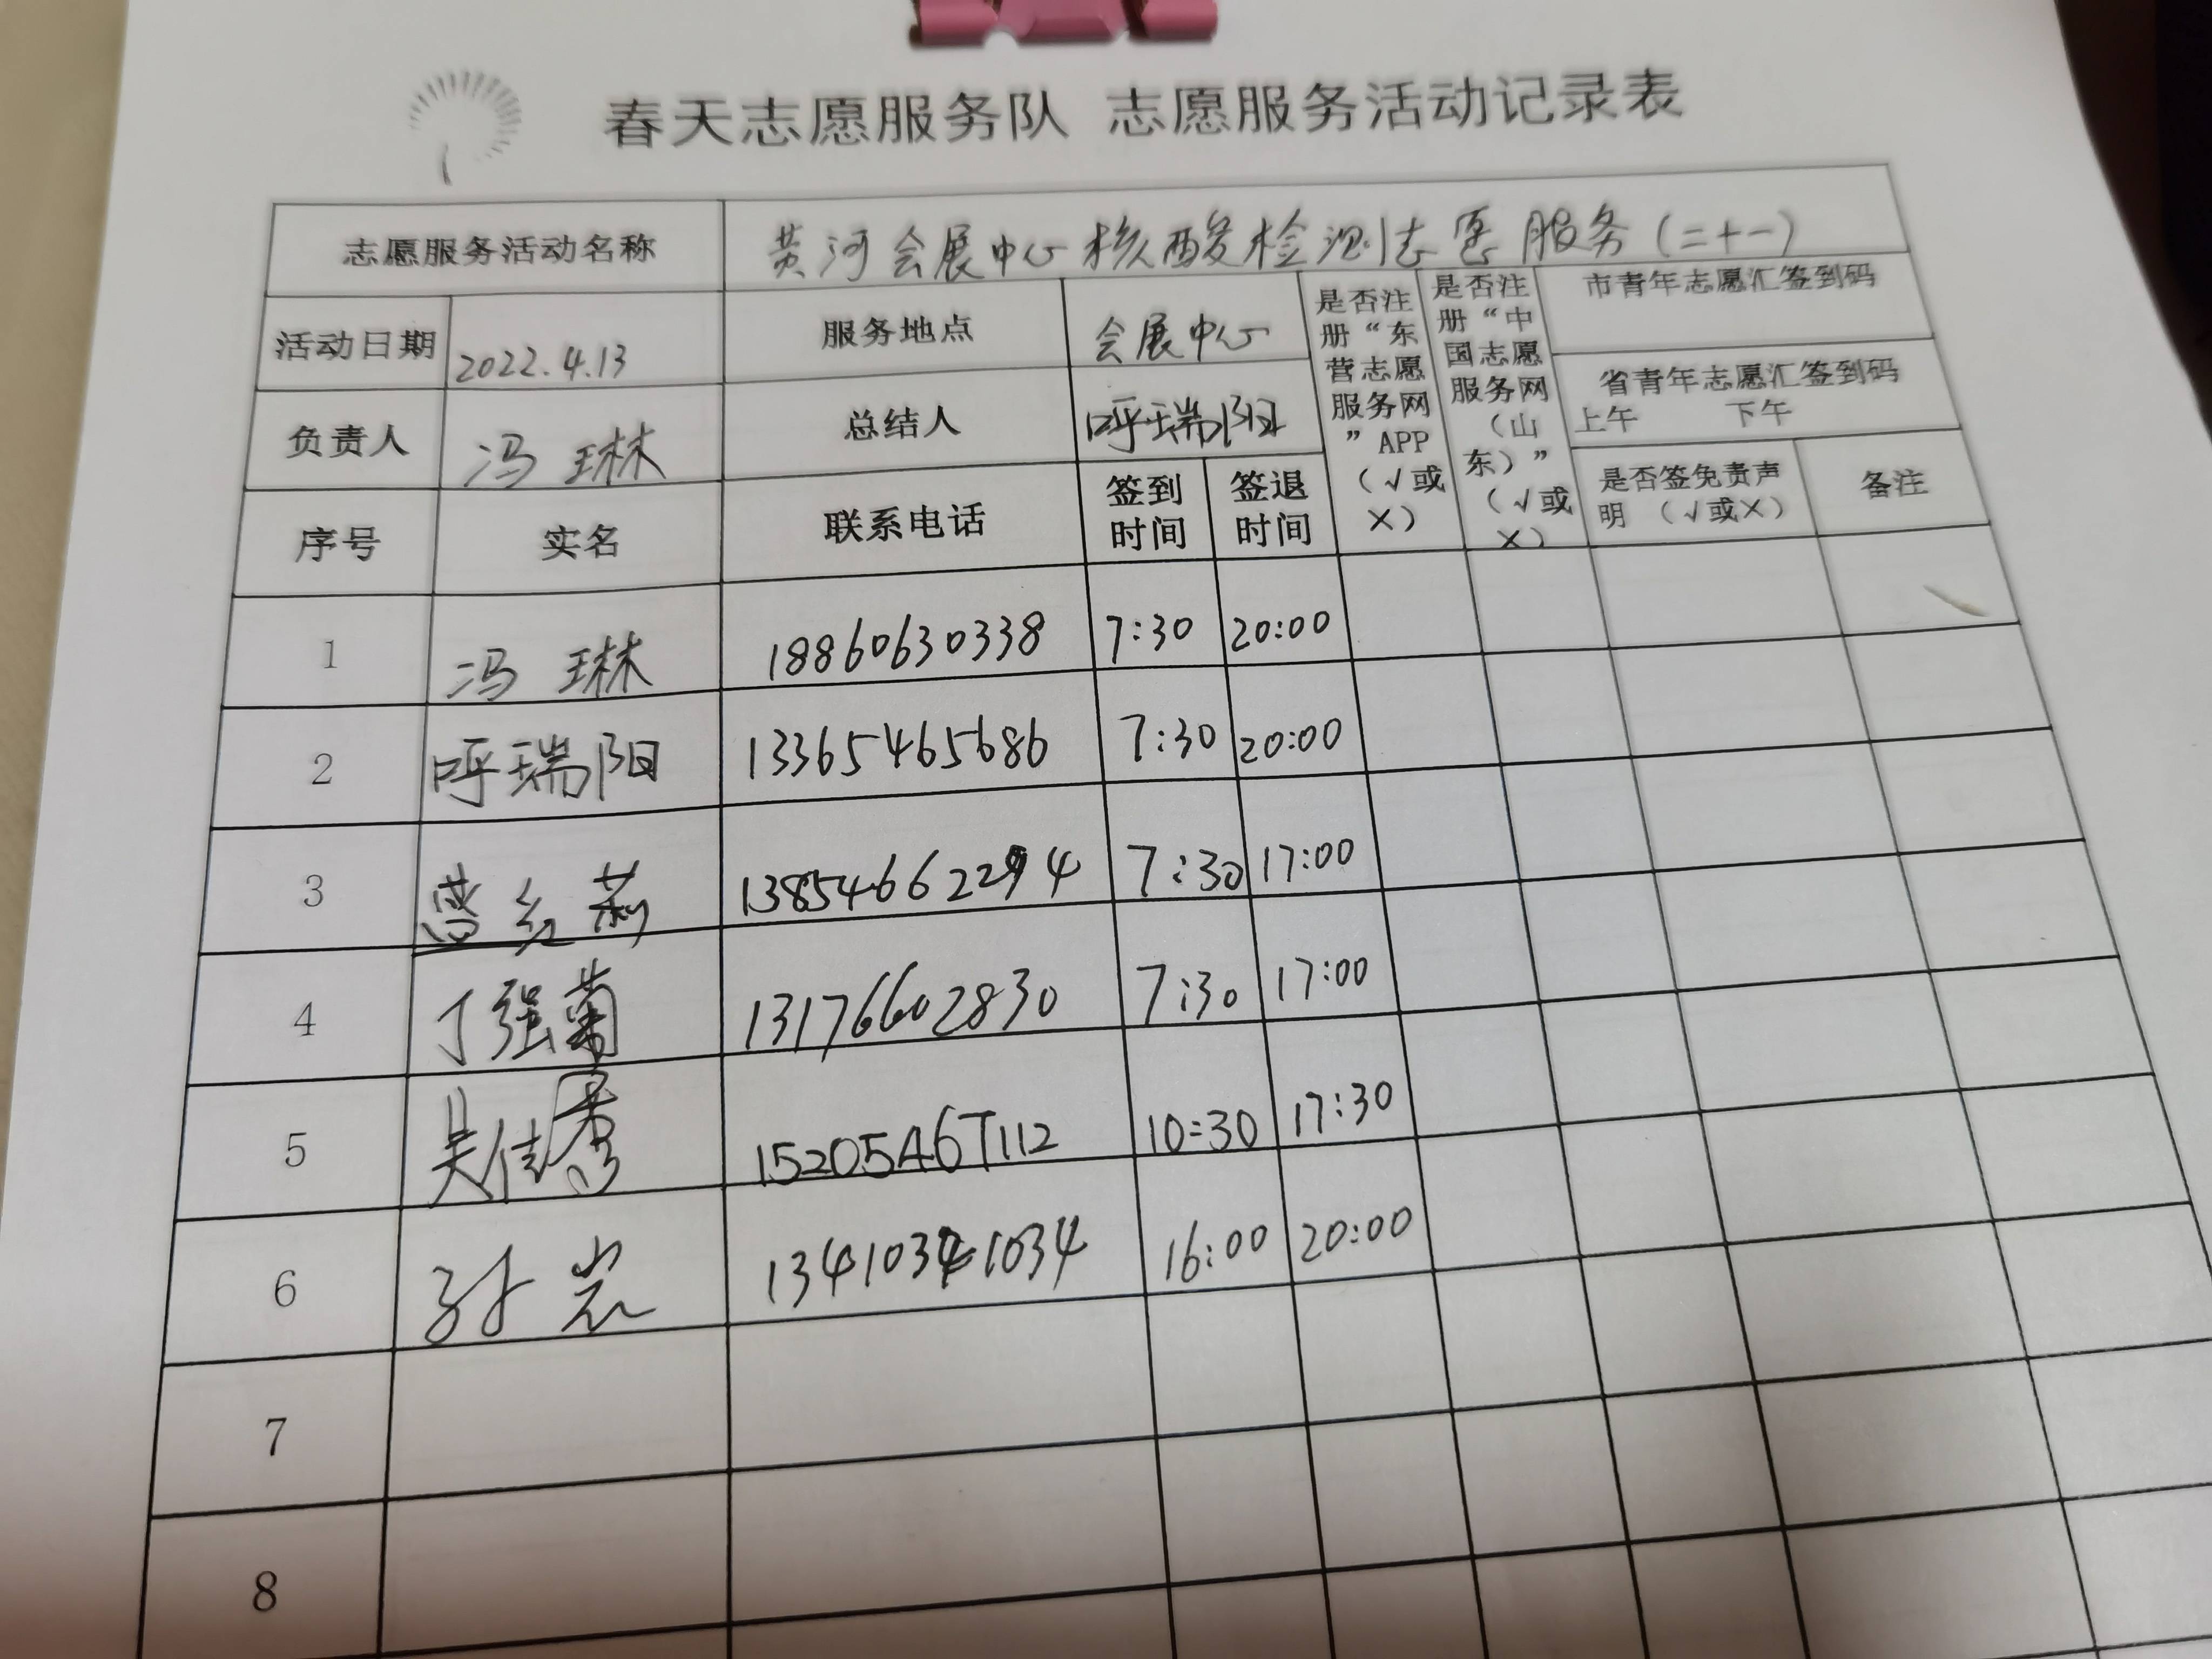 春天志愿服务队 志愿服务活动记录表
志愿服务活动名称 黄河会展中心核酸检测志愿服务(二十一)
活动日期 2022.4.13 服务地点 会展中心 是否注册“东营志愿服务网”APP（√或×） 是否注册“中国志愿服务网（山东）”（√或×） 市青年志愿汇签到码
省青年志愿汇签到码
上午 下午
负责人 冯琳 总结人 呼瑞阳
序号 实名 联系电话 签到时间 签退时间 是否签免责声明（√或×） 备注
1 冯琳 18860630338 7:30 20:00
2 呼瑞阳 13365465686 7:30 20:00
3 红莉 13854662294 7:30 17:00
4 丁强菊 13176602830 7:30 17:00
5 吴佳秀 15205467112 10:30 17:30
6 孙岩 13410341034 16:00 20:00
7
8